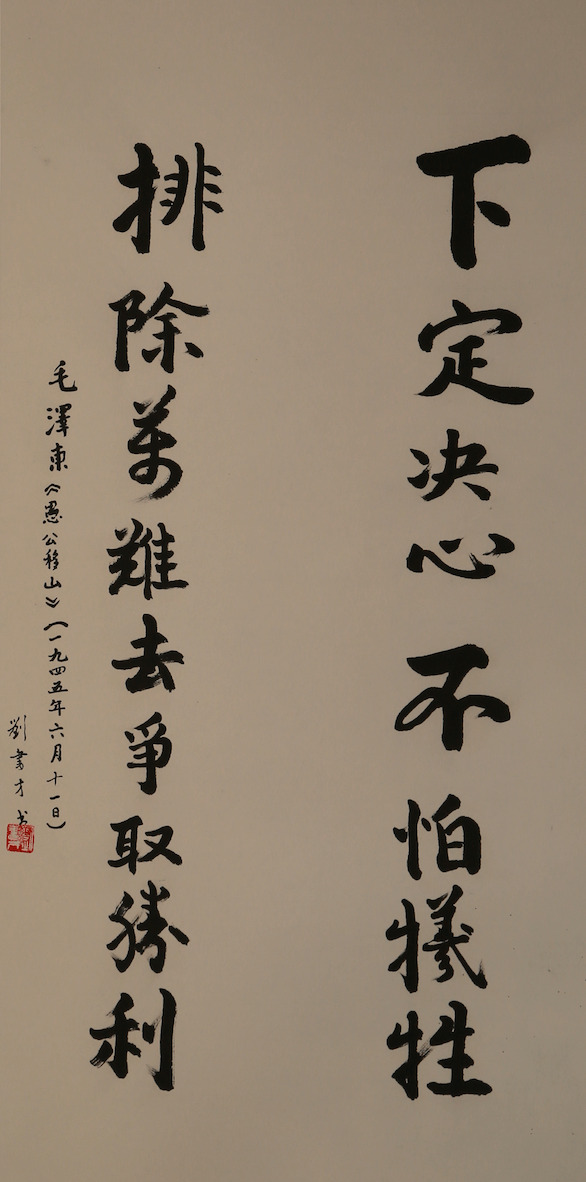 下定决心不怕犧牲
排除萬難去爭取勝利
毛澤東《愚公移山》(一九四五年六月十一日)
劉書才书